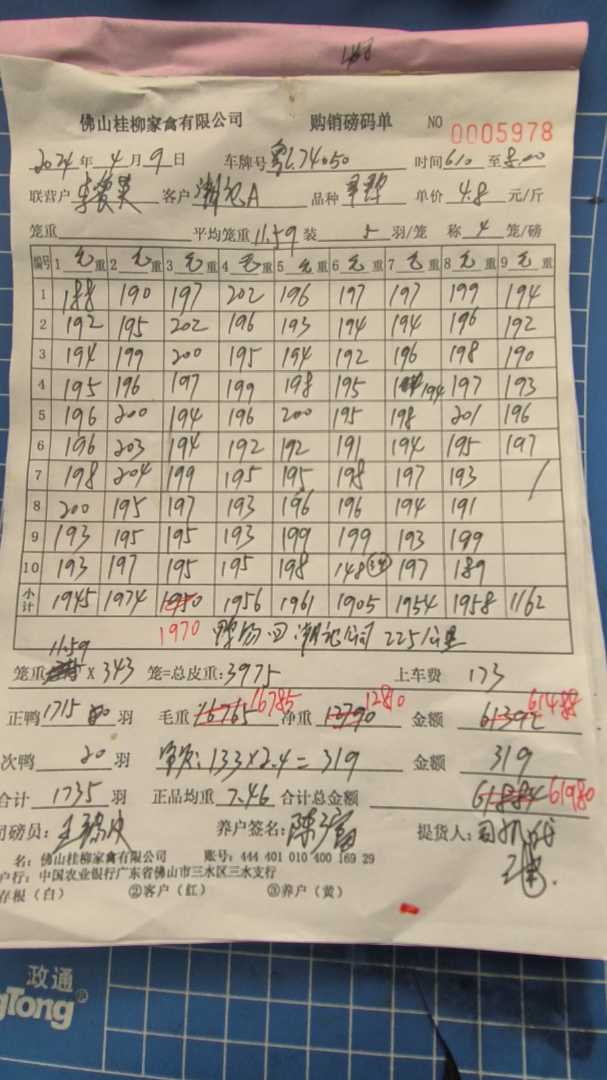 佛山桂柳家禽有限公司 购销磅码单 NO 0005978
2024年4月9日 车牌号 粤L74050 时间 610 至 8.00
联营户 客户 潮记A 品种 单价 4.8 元/斤
笼重 平均笼重 11.59 装 5 羽/笼 称 4 笼/磅
编号 1 毛重 2 毛重 3 毛重 4 毛重 5 毛重 6 毛重 7 毛重 8 毛重 9 毛重
1 188 190 197 202 196 197 197 199 194
2 192 195 202 196 193 194 194 196 192
3 194 199 200 195 194 192 196 198 190
4 195 196 197 199 198 195 194 197 193
5 196 200 194 196 200 195 198 201 196
6 196 203 194 192 192 191 194 195 197
7 198 204 199 195 195 198 197 193 /
8 200 195 197 193 196 196 194 191
9 193 195 195 193 199 199 193 199
10 193 197 195 195 198 148 197 189
小计 1945 1974 1980 1956 1961 1905 1954 1958 1162
1970 鸭场回潮记公司 225公里
11.59
笼重 X 343 笼=总皮重: 3975 上车费 173
正鸭 1715 羽 毛重 16765 16785 净重 12790 12810 金额 61392 61488
次鸭 20 羽 133×2.4=319 金额 319
合计 1735 羽 正品均重 7.46 合计总金额 61884 61980
司磅员: 养户签名: 提货人:
名: 佛山桂柳家禽有限公司 账号: 444 401 010 400 169 29
户行: 中国农业银行广东省佛山市三水区三水支行
存根（白） ②客户（红） ③养户（黄）
政通
gTong®